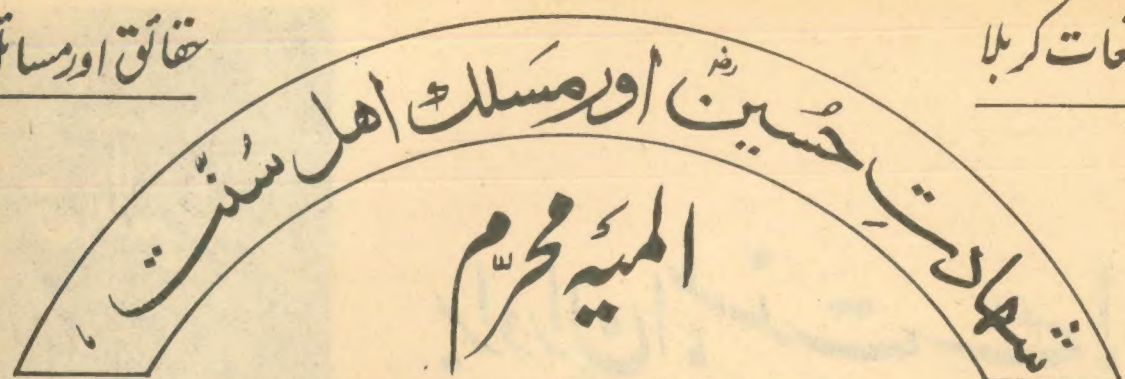 عات کربلا
حقائق اور مسا
شہادتِ حسینؓ اور مسلک اهل سُنّت
المیۂ محرّم